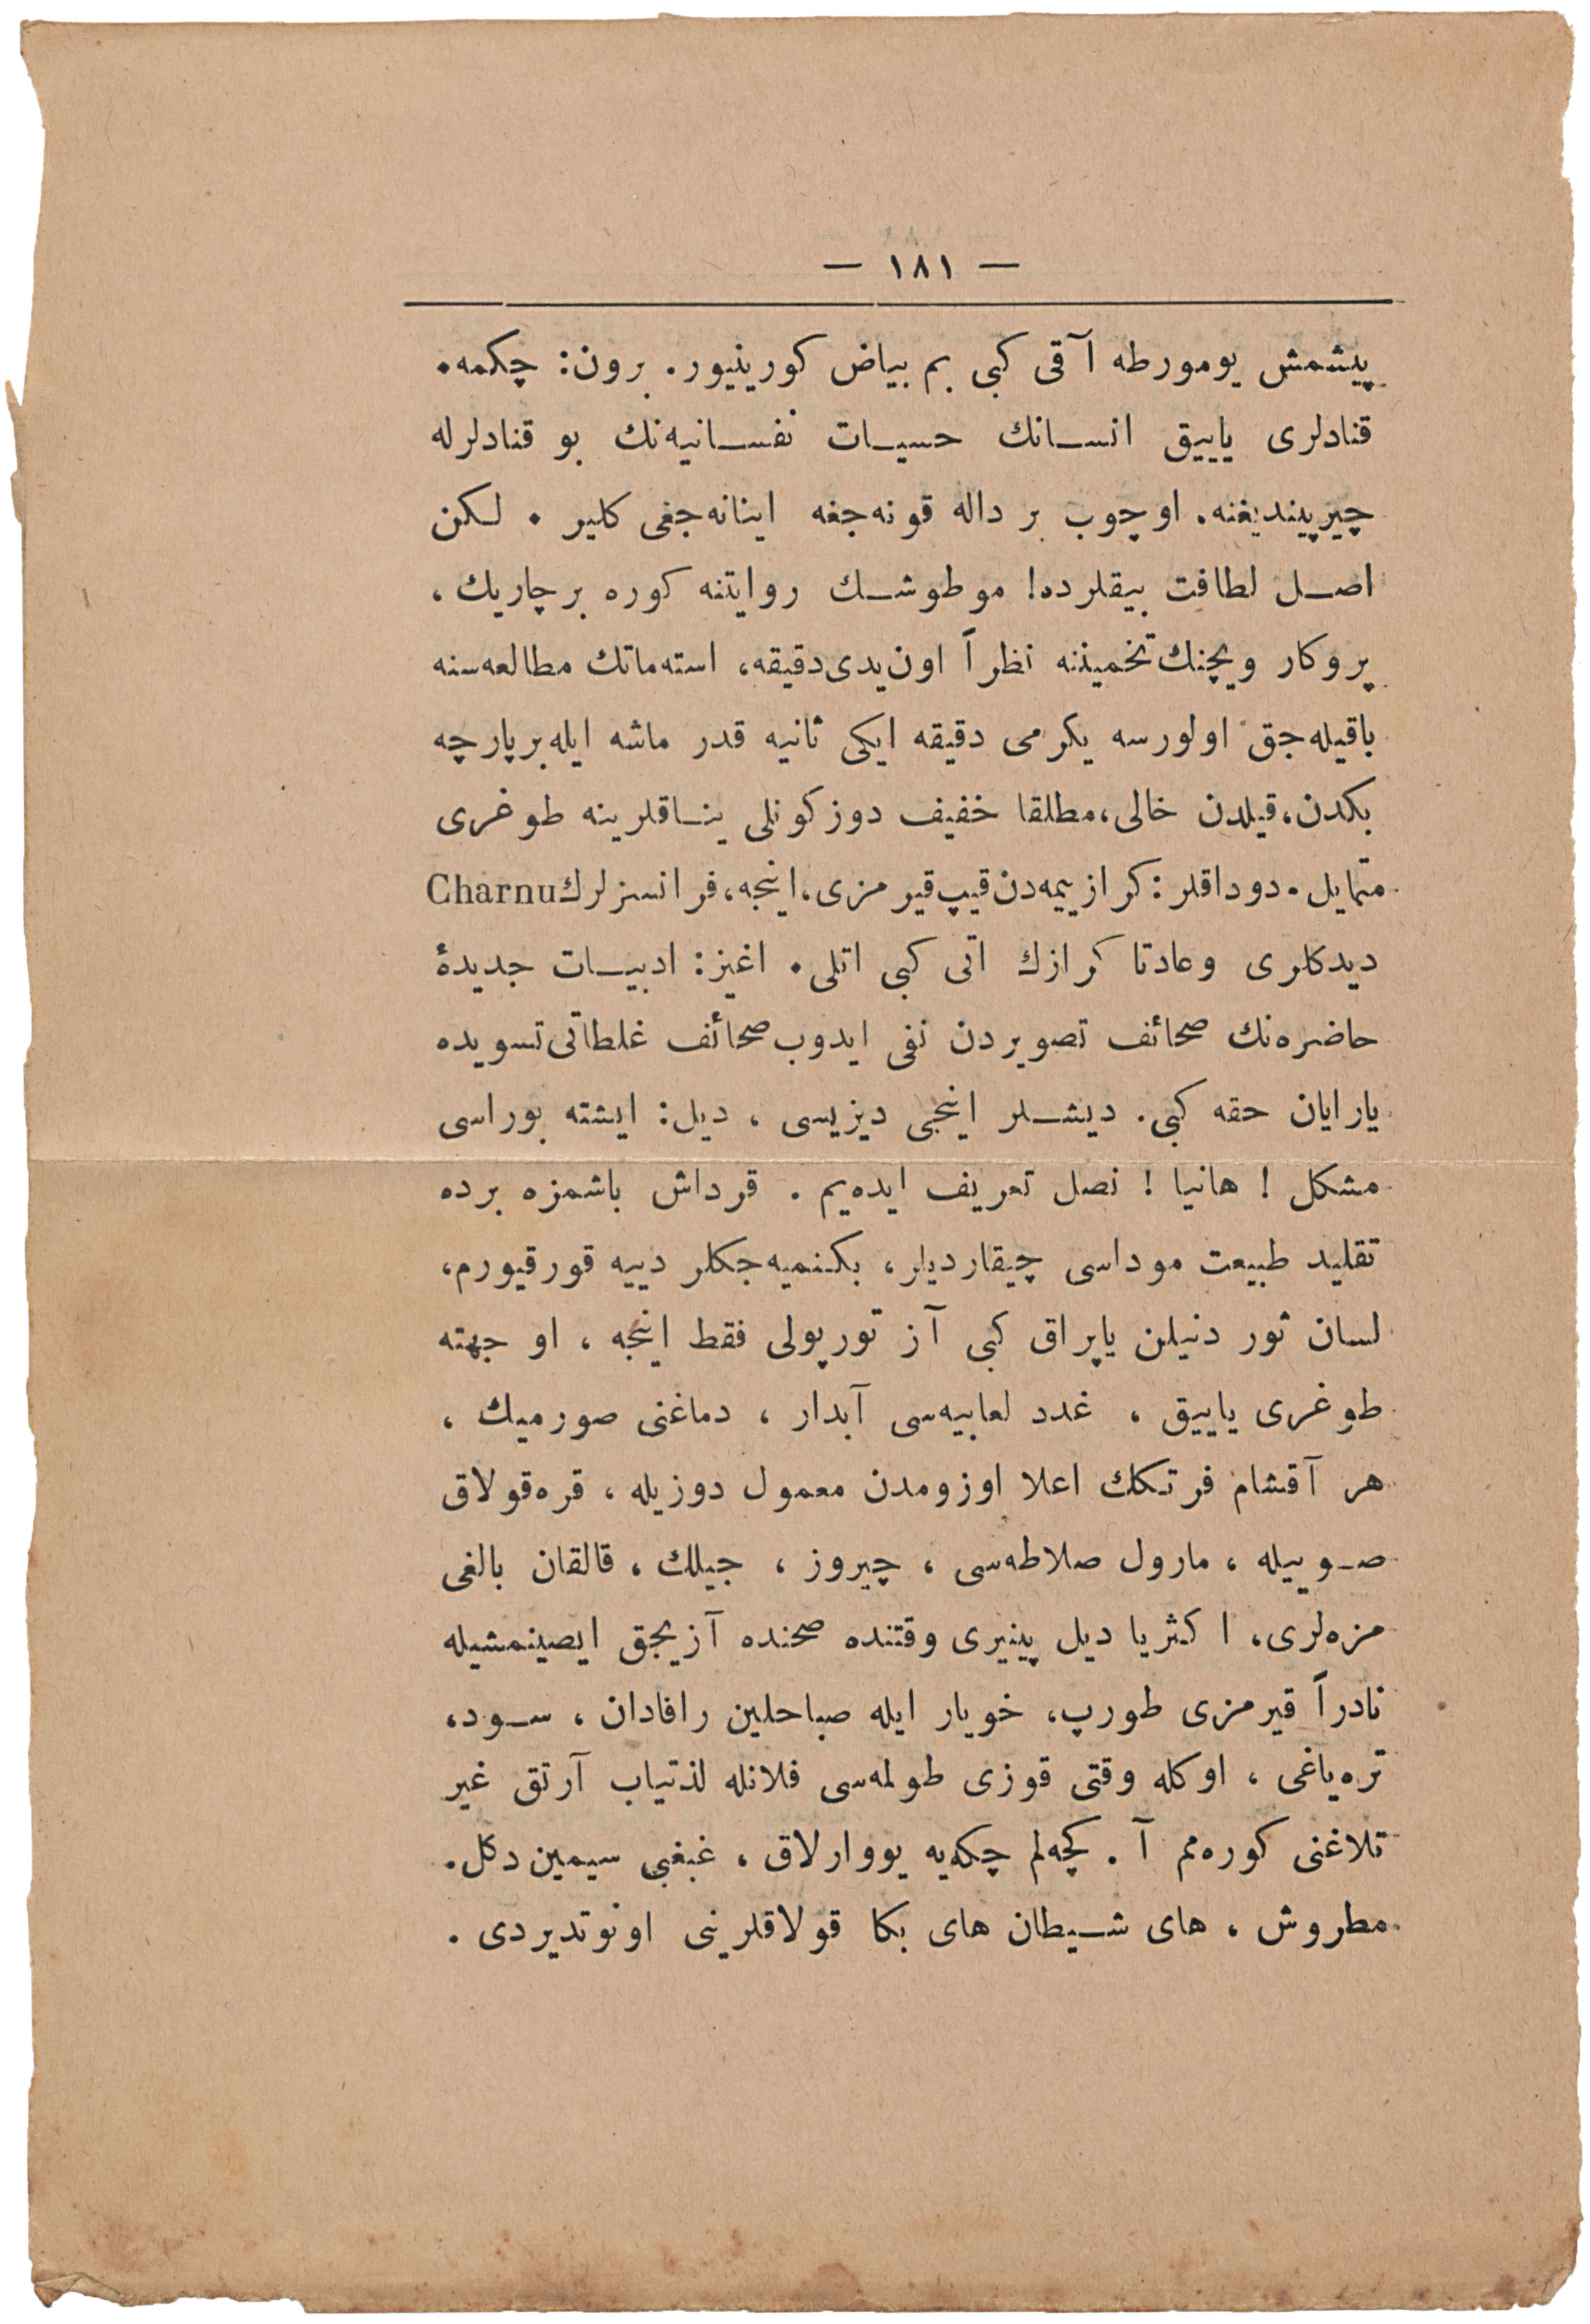 — ١٨١ —
پيشمش يومورطه آقى كبى بم بياض كورينيور. برون: چكمه.
قنادلرى ياييق انسانك حسيات نفسانيه‌نك بو قنادلرله
چيرپينديغنه. اوچوب بر داله قونه‌جغه اينانه‌جغى كلير . لكن
اصل لطافت بيقلرده! موطوشك روايتنه كوره برچاريك ،
پروكار ويچنك تخميننه نظراً اون‌يدى دقيقه، استه‌ماتك مطالعه‌سنه
باقيله‌جق اولورسه يكرمى دقيقه ايكى ثانيه قدر ماشه ايله برپارچه
بكدن، قيلدن خالى، مطلقا خفيف دوزكونلى يناقلرينه طوغرى
متمايل. دوداقلر: كراز ييمه‌دن قيپ قيرمزى، اينجه، فرانسزلرك Charnu
ديدكلرى وعادتا كرازك اتى كبى اتلى. اغيز: ادبيات جديدۀ
حاضره‌نك صحائف تصويردن نفى ايدوب صحائف غلطاتى تسويده
يارايان حقه كبى. ديشلر اينجى ديزيسى ، ديل: ايشته بوراسى
مشكل ! هانيا ! نصل تعريف ايده‌يم . قرداش باشمزه برده
تقليد طبيعت موداسى چيقارديلر، بكنميه‌جكلر دييه قورقيورم،
لسان ثور دنيلن ياپراق كبى آز تورپولى فقط اينجه ، او جهته
طوغرى ياييق ، غدد لعابيه‌سى آبدار ، دماغنى صورميك ،
هر آقشام فرتكك اعلا اوزومدن معمول دوزيله ، قره‌قولاق
صوييله ، مارول صلاطه‌سى ، چيروز ، جيلك ، قالقان بالغى
مزه‌لرى، اكثريا ديل پينيرى وقتنده صحنده آزيجق ايصينمشيله
نادراً قيرمزى طورپ، خويار ايله صباحلين رافادان ، سود،
تره‌ياغى ، اوكله وقتى قوزى طولمه‌سى فلانله لذتياب آرتق غير
تلاغنى كوره‌مم آ . كچه‌لم چكه‌يه يووارلاق ، غبغبى سيمين دكل.
مطروش ، هاى شيطان هاى بكا قولاقلرينى اونوتديردى .